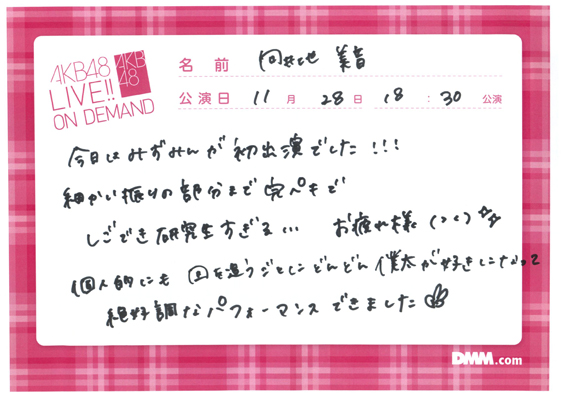 AKB48
LIVE!!
ON DEMAND
AKB
48
名前 向井地 美音
公演日 11月 28日 18:30 公演
今日はみずみんが初出演でした!!!
細かい振りの部分まで完ペキで
しごでき研究生すぎる… お疲れ様(><)
個人的にも 回を追うごとにどんどん 僕太が好きになって
絶好調なパフォーマンスできました
DMM.com